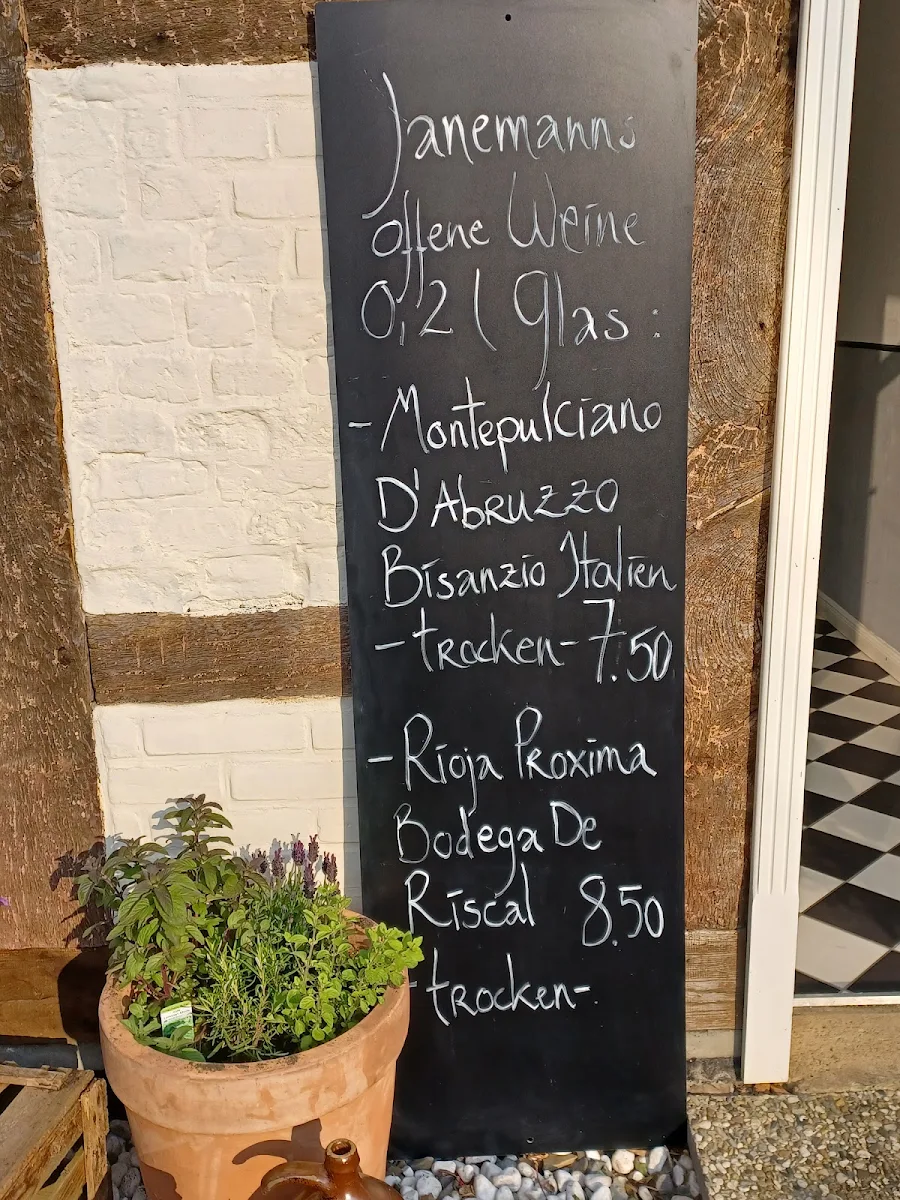 Janemanns
offene Weine
0,2 l Glas :
- Montepulciano
D'Abruzzo
Bisanzio Italien
- trocken - 7.50
- Rioja Proxima
Bodega De
Riscal 8.50
- trocken -